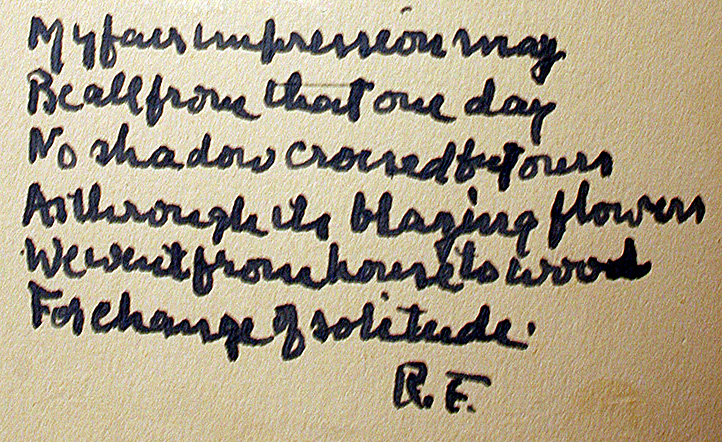 My fair impression may
Be all from that one day
No shadow crossed but ours
As through its blazing flowers
We went from house to wood
For change of solitude.
R. F.